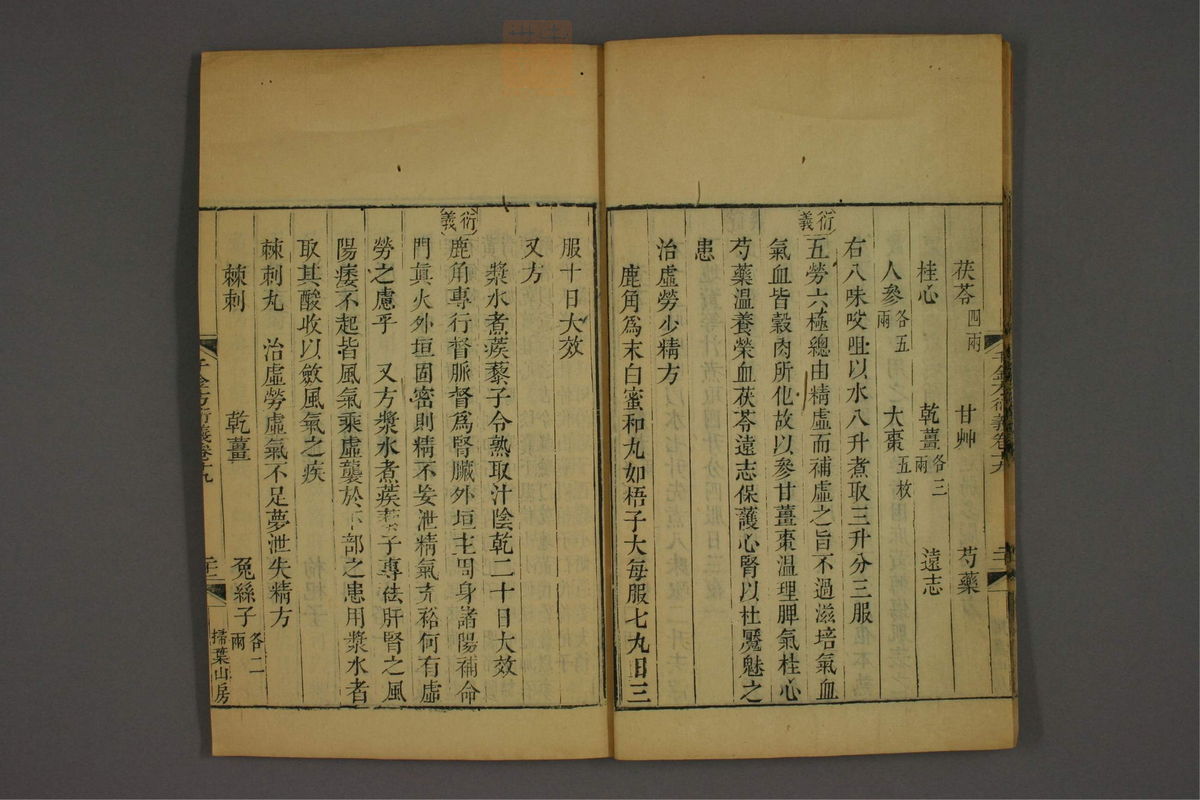 茯苓四兩 甘艸 芍藥
桂心 乾薑各三兩 遠志
人參各五兩 大棗五枚
右八味㕮咀以水八升煮取三升分三服
衍義
五勞六極總由精虛而補虛之旨不過滋培氣血
氣血皆穀肉所化故以參甘薑棗溫理脾氣桂心
芍藥溫養榮血茯苓遠志保護心腎以杜魘魅之
患
治虛勞少精方
鹿角爲末白蜜和丸如梧子大每服七丸日三
服十日大效
又方
漿水煮蒺藜子令熟取汁陰乾二十日大效
衍義
鹿角專行督脈督爲腎臟外垣主周身諸陽補命
門眞火外垣固密則精不妄泄精氣充裕何有虛
勞之慮乎 又方漿水煮蒺藜子專祛肝腎之風
陽痿不起皆風氣乘虛襲於下部之患用漿水者
取其酸收以斂風氣之疾
棘刺丸 治虛勞虛氣不足夢泄失精方
棘刺 乾薑 兔絲子各二兩
千金方衍義卷十九
掃葉山房